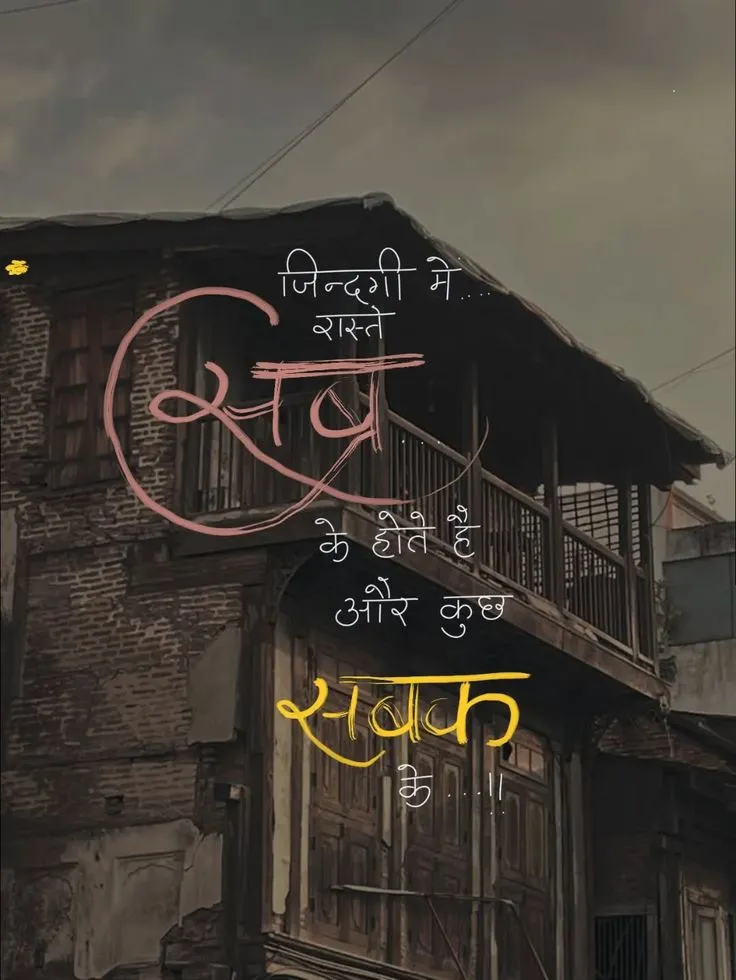 जिन्दगी मे....
रास्ते
सब
के होते है
और कुछ
सबक
के ...!!